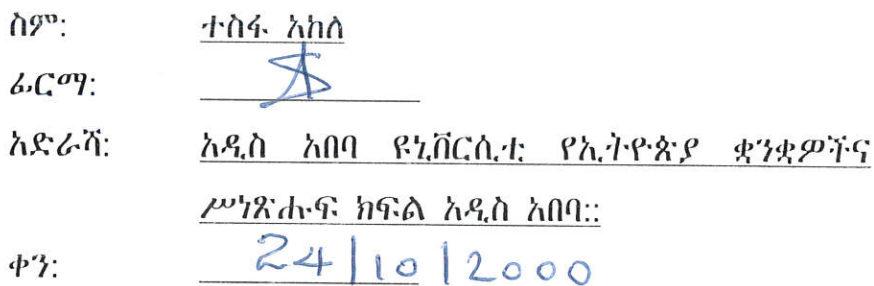 ስም: ተስፋ አከለ
ፊርማ:
አድራሻ: አዲስ አበባ ዩኒቨርሲቲ የኢትዮጵያ ቋንቋዎችና
ሥነጽሑፍ ክፍል አዲስ አበባ::
ቀን: 24|10|2000